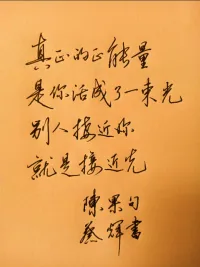 真正的正能量
是你活成了一束光
别人接近你
就是接近光
陳果句
蔡輝書